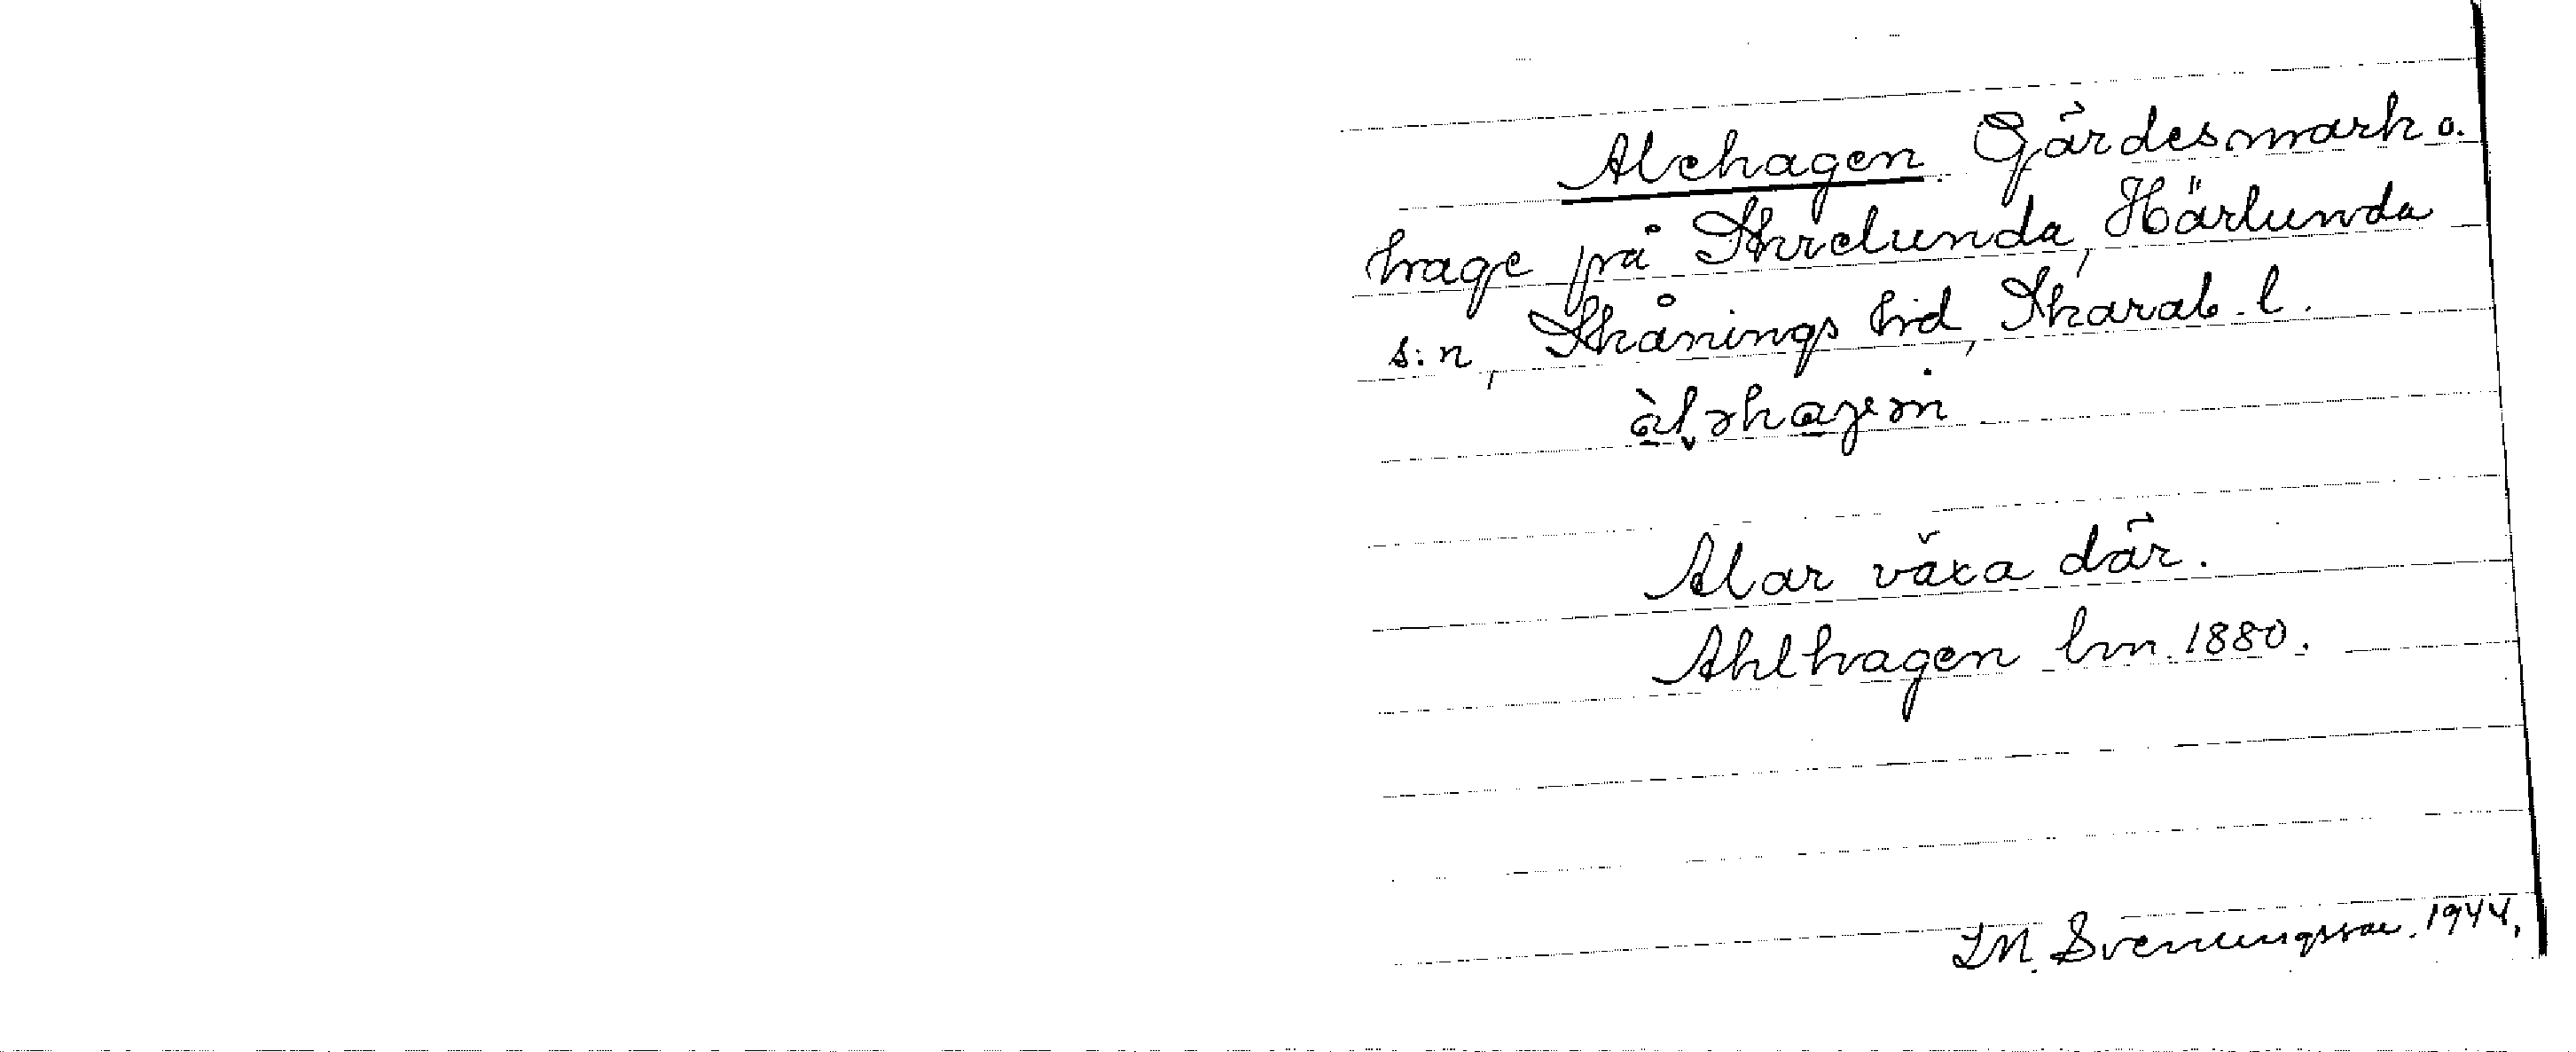 Alehagen. Gärdesmark o.
hage på Skrelunda, Härlunda
s:n, Skånings hd, Skarab. l.
àlrhagen
Alar växa där.
Ahlhagen lm. 1880.
Svenungsson. 1944.